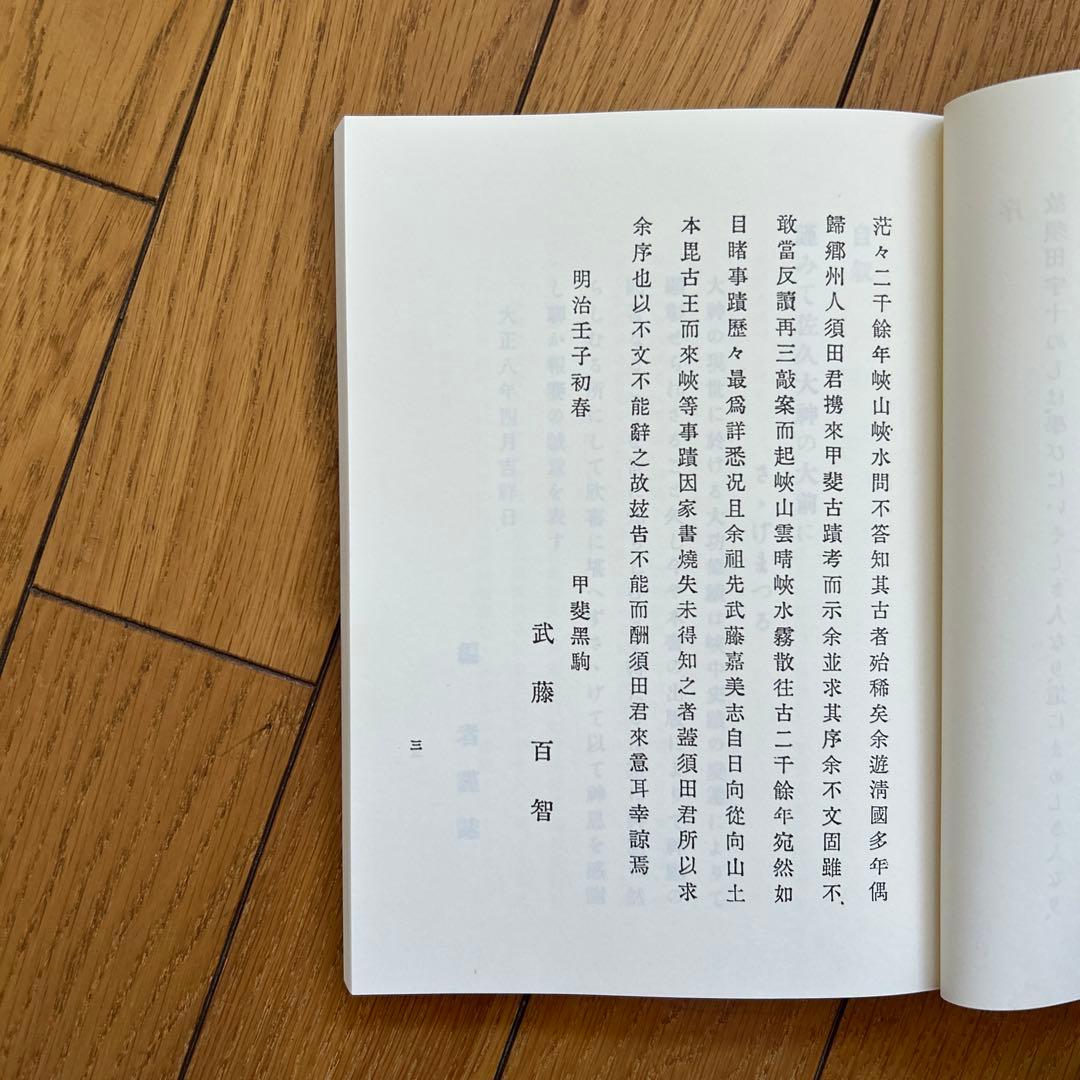 茫々二千餘年峽山峽水問不答知其古者殆稀矣余遊淸國多年偶
歸鄕州人須田君携來甲斐古蹟考而示余並求其序余不文固雖不、
敢當反讀再三敲案而起峽山雲晴峽水霧散往古二千餘年宛然如
目睹事蹟歷々最爲詳悉況且余祖先武藤嘉美志自日向從向山土
本毘古王而來峽等事蹟因家書燒失未得知之者蓋須田君所以求
余序也以不文不能辭之故玆告不能而酬須田君來意耳幸諒焉
明治壬子初春
甲斐黑駒
武藤百智
三